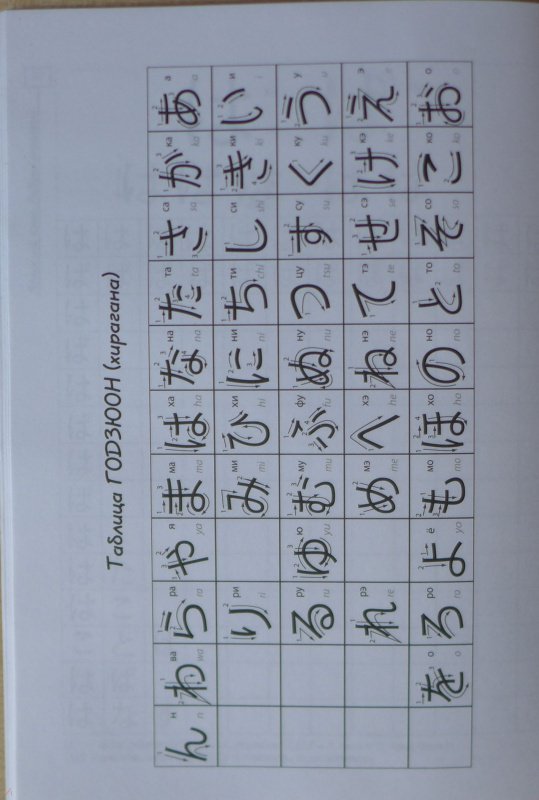 Таблица ГОДЗЮОН (хирагана)
ん わ ら や ま は な た さ か あ
н ва ра я ма ха на та са ка а
n wa ra ya ma ha na ta sa ka a
り み ひ に ち し き い
ри ми хи ни ти си ки и
ri mi hi ni chi shi ki i
る ゆ む ふ ぬ つ す く う
ру ю му фу ну цу су ку у
ru yu mu fu nu tsu su ku u
れ め へ ね て せ け え
рэ мэ хэ нэ тэ сэ кэ э
re me he ne te se ke e
を ろ よ も ほ の と そ こ お
о ро ё мо хо но то со ко о
o ro yo mo ho no to so ko o